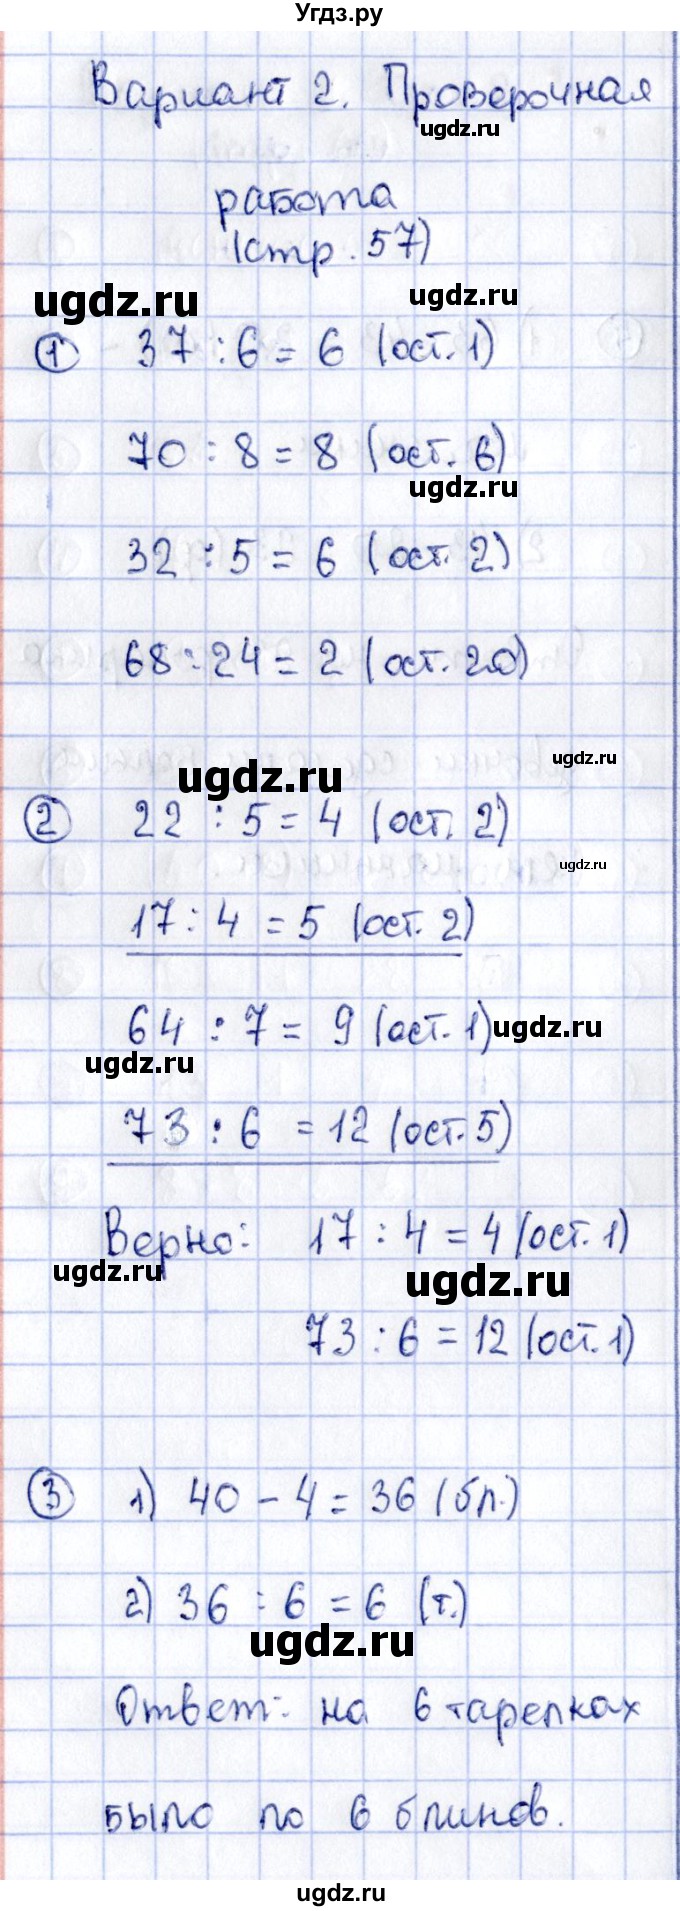 Угдз.ру
Вариант 2. Проверочная
ugdz.ru
работа
(стр. 57)
ugdz.ru ugdz.ru
1 37 : 6 = 6 (ост. 1)
70 : 8 = 8 (ост. 6)
ugdz.ru
32 : 5 = 6 (ост. 2)
68 : 24 = 2 (ост. 20)
ugdz.ru ugdz.ru
2 22 : 5 = 4 (ост. 2)
ugdz.ru
17 : 4 = 5 (ост. 2)
64 : 7 = 9 (ост. 1) ugdz.ru
ugdz.ru
73 : 6 = 12 (ост. 5)
Верно: 17 : 4 = 4 (ост. 1)
ugdz.ru ugdz.ru
73 : 6 = 12 (ост. 1)
3 1) 40 - 4 = 36 (бл.)
2) 36 : 6 = 6 (т.)
ugdz.ru
Ответ: на 6 тарелках
было по 6 блинов.
ugdz.ru